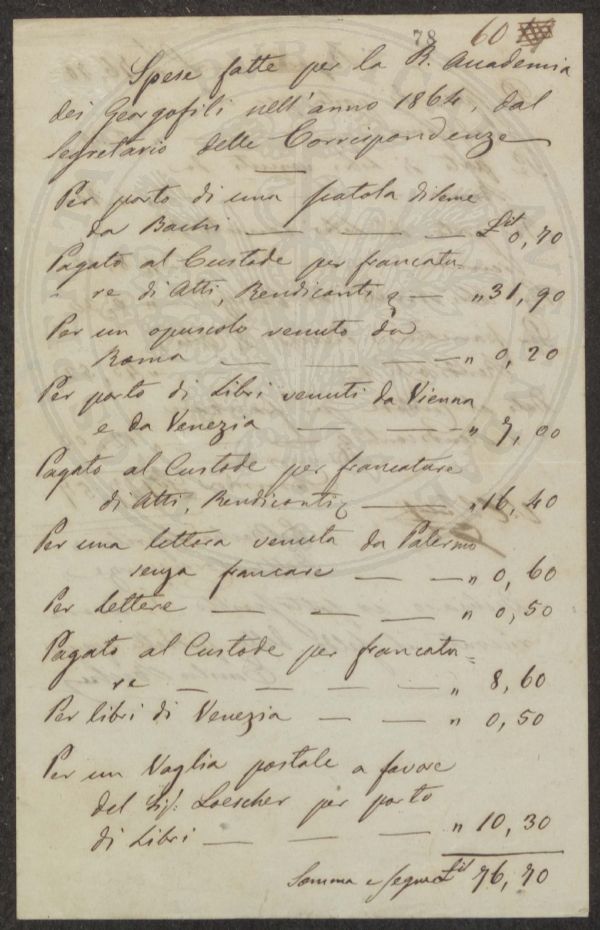 78 60
Spese fatte per la R. Accademia
dei Georgofili nell'anno 1864, dal
Segretario delle Corrispondenze
Per porto di una scatola di seme
da Bachi — — — Lit 0,70
Pagato al Custode per francatu-
re di Atti, Rendiconti — " 31,90
Per un opuscolo venuto da
Roma — — — " 0,20
Per porto di Libri venuti da Vienna
e da Venezia — — — " 7,00
Pagato al Custode per francature
di Atti, Rendiconti — — " 16,40
Per una lettera venuta da Palermo
senza francare — — " 0,60
Per Lettere — — — " 0,50
Pagato al Custode per francatu=
re — — — — " 8,60
Per libri di Venezia — — " 0,50
Per un Vaglia postale a favore
del Sig: Loescher per porto
di Libri — — — — " 10,30
Somma e segue Lit 76,70